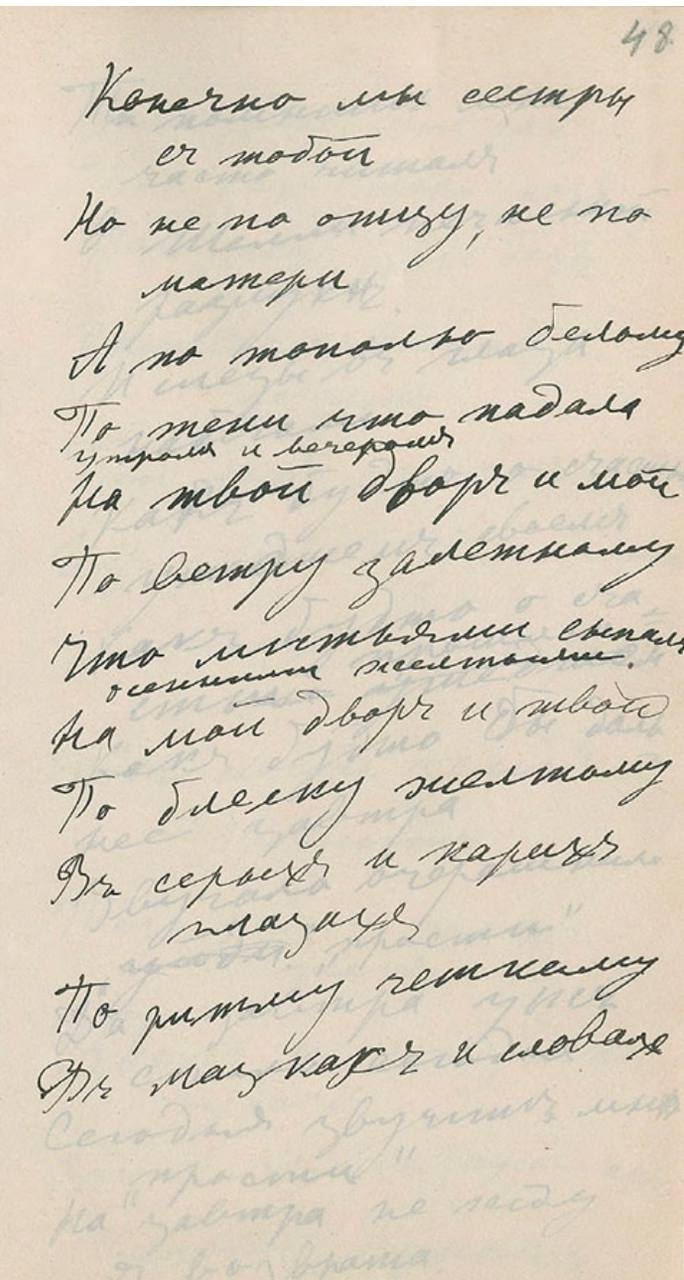 48
Конечно мы сестры
съ тобой
Но не по отцу, не по
матери
А по тополю белому
По тени что падала
утромъ и вечеромъ
На твой дворъ и мой
По ветру залетному
Что листьями сыпалъ
осенними желтыми.
На мой дворъ и твой
По блеску желтому
Въ серыхъ и карихъ
глазахъ
По ритму четкому
Въ мазкахъ и словахъ